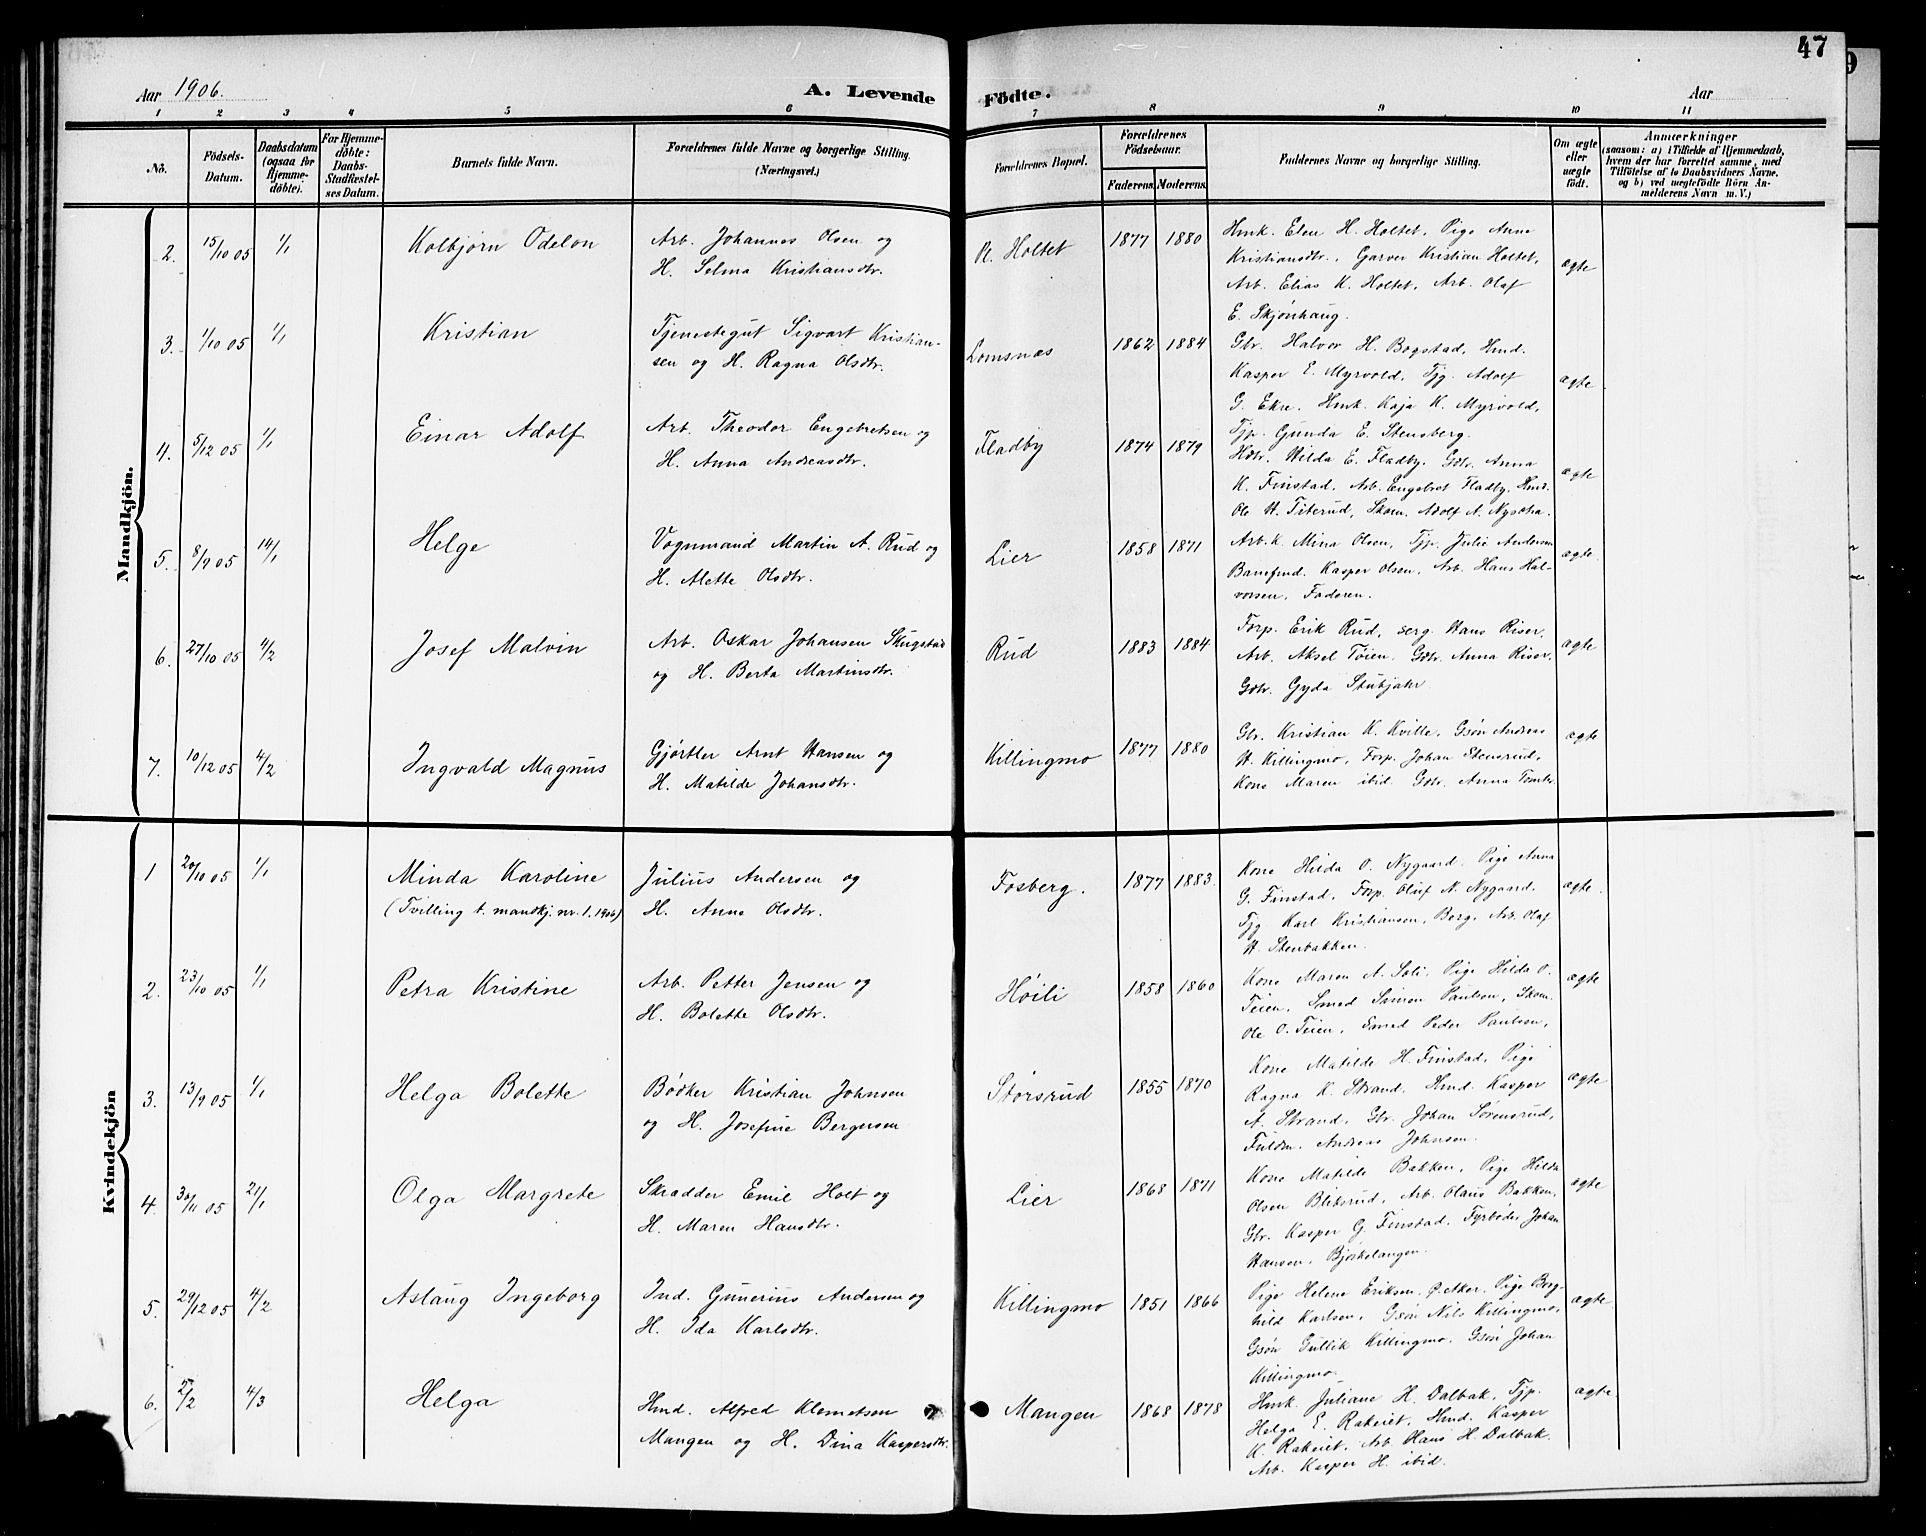 47
Aar 1906.
A. Levende Födte.
Aar
1 2 3 4 5 6 7 8 9 10 11
No.
Födsels-Datum.
Daabsdatum (ogsaa for Hjemmedøbte).
For Hjemmedøbte: Daabs-Stadfestelses Datum.
Barnets fulde Navn.
Forældrenes fulde Navne og borgerlige Stilling. (Næringsvei.)
Forældrenes Bopæl.
Forældrenes Födselsaar.
Faderens. Moderens.
Faddernes Navne og borgerlige Stilling.
Om ægte eller uægte født.
Anmærkninger
(saasom: a) i Tilfælde af Hjemmedaab, hvem der har forrettet samme, med Tilføielse af to Daabsvidners Navne. og b) ved uegtefödte Börn Anmelderens Navn m. V.)
Mandkjön.
2. 15/10 05 1/1 Kolbjørn Odelon Arb. Johannes Olsen og H. Selma Kristiansdtr. Pl. Holtet 1877 1880
Hmk. Elen H. Holtet, Pige Anne
Kristiansdtr., Garver Kristian Holtet,
Arb. Elias K. Holtet, Arb. Olaf
E. Skjønhaug.
ægte
3. 1/10 05 1/1 Kristian Tjenestegut Sigvart Kristiansen og H. Ragna Olsdtr. Lomsnæs 1862 1884
Gbr. Halvor H. Bogstad, Hmd.
Kasper E. Myrvold, Tjg. Adolf
G. Ekre. Hmk. Kaja K. Myrvold,
Tjp. Gunda E. Stensberg.
ægte
4. 5/12 05 1/1 Einar Adolf Arb. Theodor Engebretsen og H. Anna Andreasdtr. Fladby 1874 1879
Hdtr. Hilda E. Fladby. Gdtr. Anna
K. Finstad, Arb. Engebret Fladby, Hmd.
Ole H. Titerud, Skom. Adolf A.
ægte
5. 8/9 05 14/1 Helge Vognmand Martin A. Rud og H. Alette Olsdtr. Lier 1858 1871
Arb.k. Mina Olsen, Tjp. Julie Andersen
Banfmd. Kasper Olsen, Arb. Hans Halvorsen, Faderen.
ægte
6. 27/10 05 4/2 Josef Malvin Arb. Oskar Johansen Skugstad og H. Berta Martinsdtr. Rud 1883 1884
Forp. Erik Rud, serg. Hans Riser,
Arb. Aksel Tøien, Gdtr. Anna Riser,
Gdtr. Gyda Stubjahr.
ægte
7. 10/12 05 4/2 Ingvald Magnus Gjørtler Arnt Hansen og H. Matilde Johansdtr. Killingmo 1877 1880
Gbr. Kristian K. Kville, Gsøn Andreas
H. Killingmo, Forp. Johan Stenerud,
Kone Maren ibid. Gdtr. Anna Tomter
ægte
Kvindekjön
1 20/10 05 1/1 Minda Karoline
(Tvilling t. mandkj. nr. 1. 1906)
Julius Andersen og H. Anne Olsdtr. Fosberg. 1877 1883.
Kone Hilda O. Nygaard. Pige Anna
G. Finstad, Forp. Oluf N. Nygaard.
Tjg Karl Kristiansen, Berg, Arb. Olaf
H. Stenbakken.
ægte
2. 23/10 05 1/1 Petra Kristine Arb. Petter Jensen og H. Bolette Olsdtr. Høili 1858 1860
Kone Maren A. Soli, Pige Hilda O.
Teien, Smed Simon Paulsen, Skom.
Ole O. Teien, Smed Peder Paulsen,
ægte
3. 13/9 05 1/1 Helga Bolette Bødker Kristian Johnsen og H. Josefine Bergersen Størsrud 1855 1870
Kone Matilde H. Finstad, Pige
Ragna K. Strand. Hmd. Kasper
A. Strand, Gbr. Johan Sørensrud,
Fuldm. Andreas Johnsen.
ægte
4. 30/11 05 21/1 Olga Margrete Skrædder Emil Holt og H. Maren Hansdtr. Lier 1868 1871
Kone Matilde Bakken, Pige Hilda
Olsen Bliksrud, Arb. Olaus Bakken,
Gbr. Kasper G. Finstad. Fyrbøder Johan
Hansen, Bjørkelangen.
ægte
5. 29/12 05 4/2 Aslaug Ingeborg Ind. Gunerius Andersen og H. Ida Karlsdtr. Killingmo 1851 1866
Pige Helene Eriksen, Ø. Aker. Pige Borghild Karlsen, Gsøn Nils Killingmo,
Gsøn Gullik Killingmo. Gsøn Johan
Killingmo.
ægte
6. 5/2 4/3 Helga Hmd. Alfred Klemetsen Mangen og H. Dina Kaspersdtr. Mangen 1868 1878
Hmk. Juliane H. Dalbak, Tjp.
Helga E. Rakeiet, Hmd. Kasper
K. Rakeiet, Arb. Hans H. Dalbak.
Arb. Kasper H. ibid.
ægte